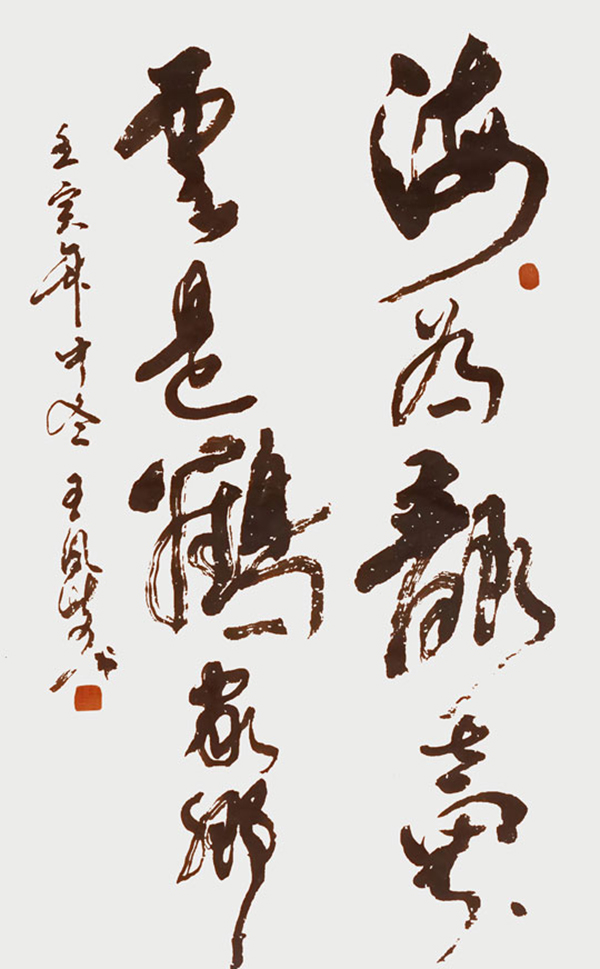 海為龍世界
雲是鶴家鄉
壬寅年中冬 王鳳